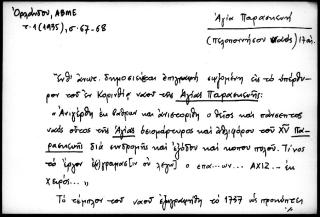 Ὀρλάνδου, ΑΒΜΕ
τ. 1 (1935), σ. 67-68
Ἁγία Παρασκευή
(Πελοποννήσου 17 αἰ.
Ἔνθ' ἀνωτ. δημοσιεύεται ἐπιγραφή εὑρημένη εἰς τό ὑπέρθυ-
ρον τοῦ ἐν Κορινθίᾳ ναοῦ τῆς Ἁγίας Παρασκευῆς:
"Ἀνιγέρθη ἐκ βάθρων καί ἀνιστορίθη ὁ θεῖος καί πάνσεπτος
ναός οὗτος τῆς Ἁγίας ὁσιομάρτυρος καί ἀθλιφόρου τοῦ ΧΥ Πα-
ρασκευῆς διά συνδρομῆς καί ἐξόδου καί κόπου πολοῦ. Τίνος
τό ἔργον ὁ επα...ων... ΑΧΙΖ... ἐκ
χειρός..."
Τό τέμπλον τοῦ ναοῦ ἐζωγραφήθη τό 1737 ὡς προκύπτει